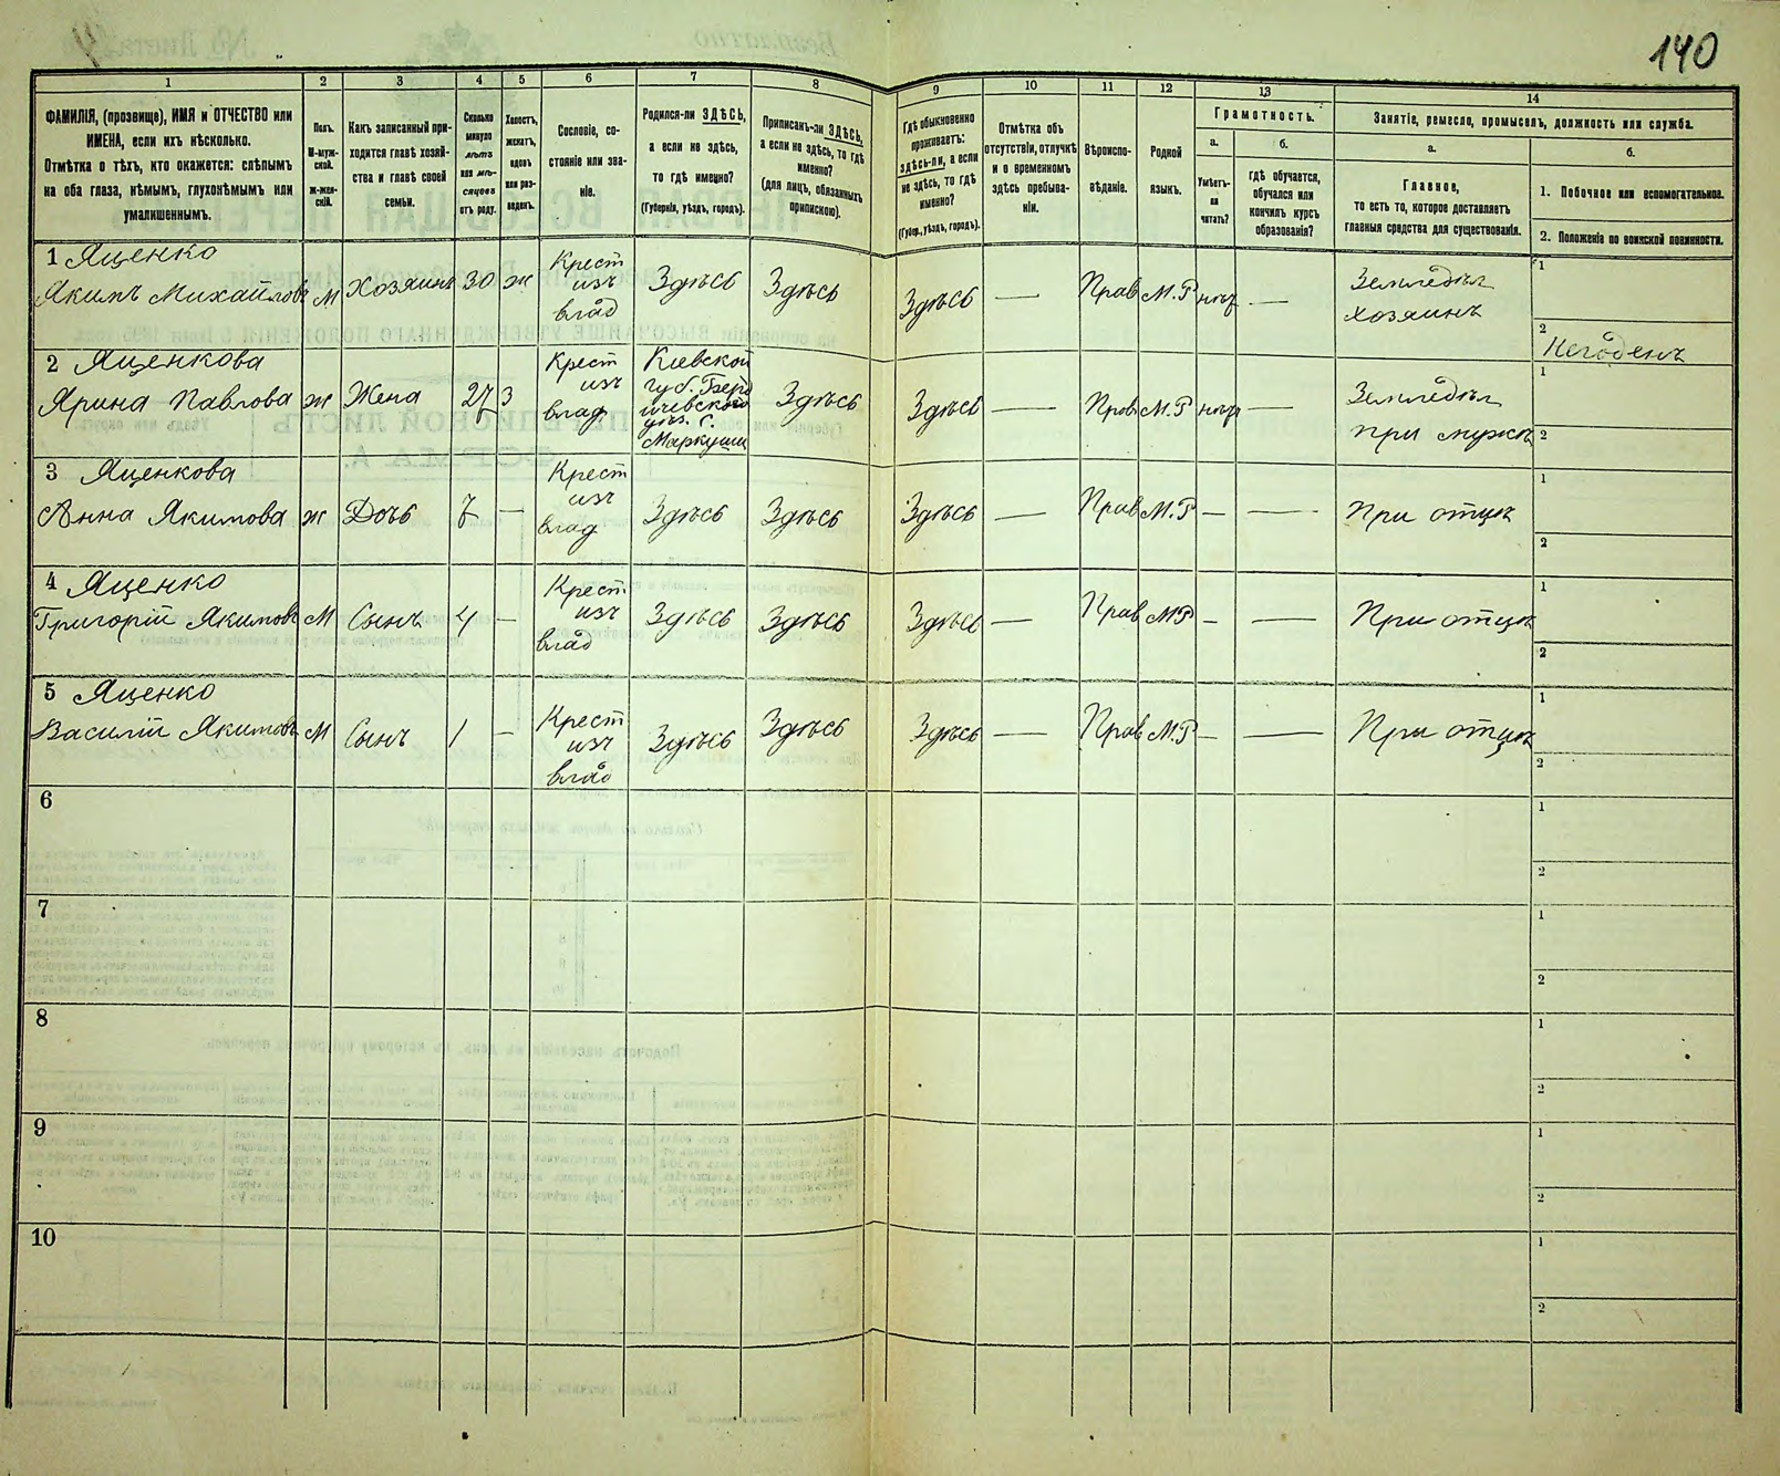 140
1
2
3
4
5
6
7
8
9
10
11
12
13
14
ФАМИЛІЯ, (прозвище), ИМЯ и ОТЧЕСТВО или
ИМЕНА, если ихъ нѣсколько.
Отмѣтка о тѣхъ, кто окажется: слѣпымъ
на оба глаза, нѣмымъ, глухонѣмымъ или
умалишеннымъ.
Полъ.
М-муж-
ской.
Ж-жен-
скій.
Какъ записанный при-
ходится главѣ хозяй-
ства и главѣ своей
семьи.
Сколько
минуло
лѣтъ
или мѣ-
сяцевъ
отъ роду.
Холостъ,
женатъ,
вдовъ
или раз-
веденъ.
Сословіе, со-
стояніе или зва-
ніе.
Родился-ли ЗДѢСЬ,
а если не здѣсь,
то гдѣ именно?
(Губернія, уѣздъ, городъ).
Приписанъ-ли ЗДѢСЬ,
а если не здѣсь, то гдѣ
именно?
(для лицъ, обязанныхъ
припискою).
Гдѣ обыкновенно
проживаетъ:
здѣсь-ли, а если
не здѣсь, то гдѣ
именно?
(Губер., уѣздъ, городъ).
Отмѣтка объ
отсутствіи, отлучкѣ
и о временномъ
здѣсь пребыва-
ніи.
Вѣроиспо-
вѣданіе.
Родной
языкъ.
Грамотность.
а.
Умѣетъ-
ли
читать?
б.
гдѣ обучается,
обучался или
кончилъ курсъ
образованія?
Занятіе, ремесло, промыселъ, должность или служба.
а.
Главное,
то есть то, которое доставляетъ
главныя средства для существованія.
б.
1. Побочное или вспомогательное.
2. Положеніе по воинской повинности.
1 Яценко
Якимъ Михайловъ М Хозяинъ 30 ж
Крест
изъ
влад
Здѣсь Здѣсь Здѣсь — Прав М.Р нѣт —
Земледѣл
хозяинъ
1
2
Негоденъ
2 Яценкова
Ярина Павлова ж Жена 27 З
Крест
изъ
влад
Кіевской
губ. Берд
ичевского
уѣз. с.
Маркуши
Здѣсь Здѣсь — Прав М.Р нѣт —
Земледѣл
при мужѣ
1
2
3 Яценкова
Анна Якимова ж Дочь 7 —
Крест
изъ
влад
Здѣсь Здѣсь Здѣсь — Прав М.Р — — При отцѣ
1
2
4 Яценко
Григорій Якимовъ М Сынъ 4 —
Крест.
изъ
влад
Здѣсь Здѣсь Здѣсь — Прав МР — — При отцѣ
1
2
5 Яценко
Василій Якимовъ М Сынъ 1 —
Крест
изъ
влад
Здѣсь Здѣсь Здѣсь — Прав М.Р — — При отцѣ
1
2
6
1
2
7
1
2
8
1
2
9
1
2
10
1
2